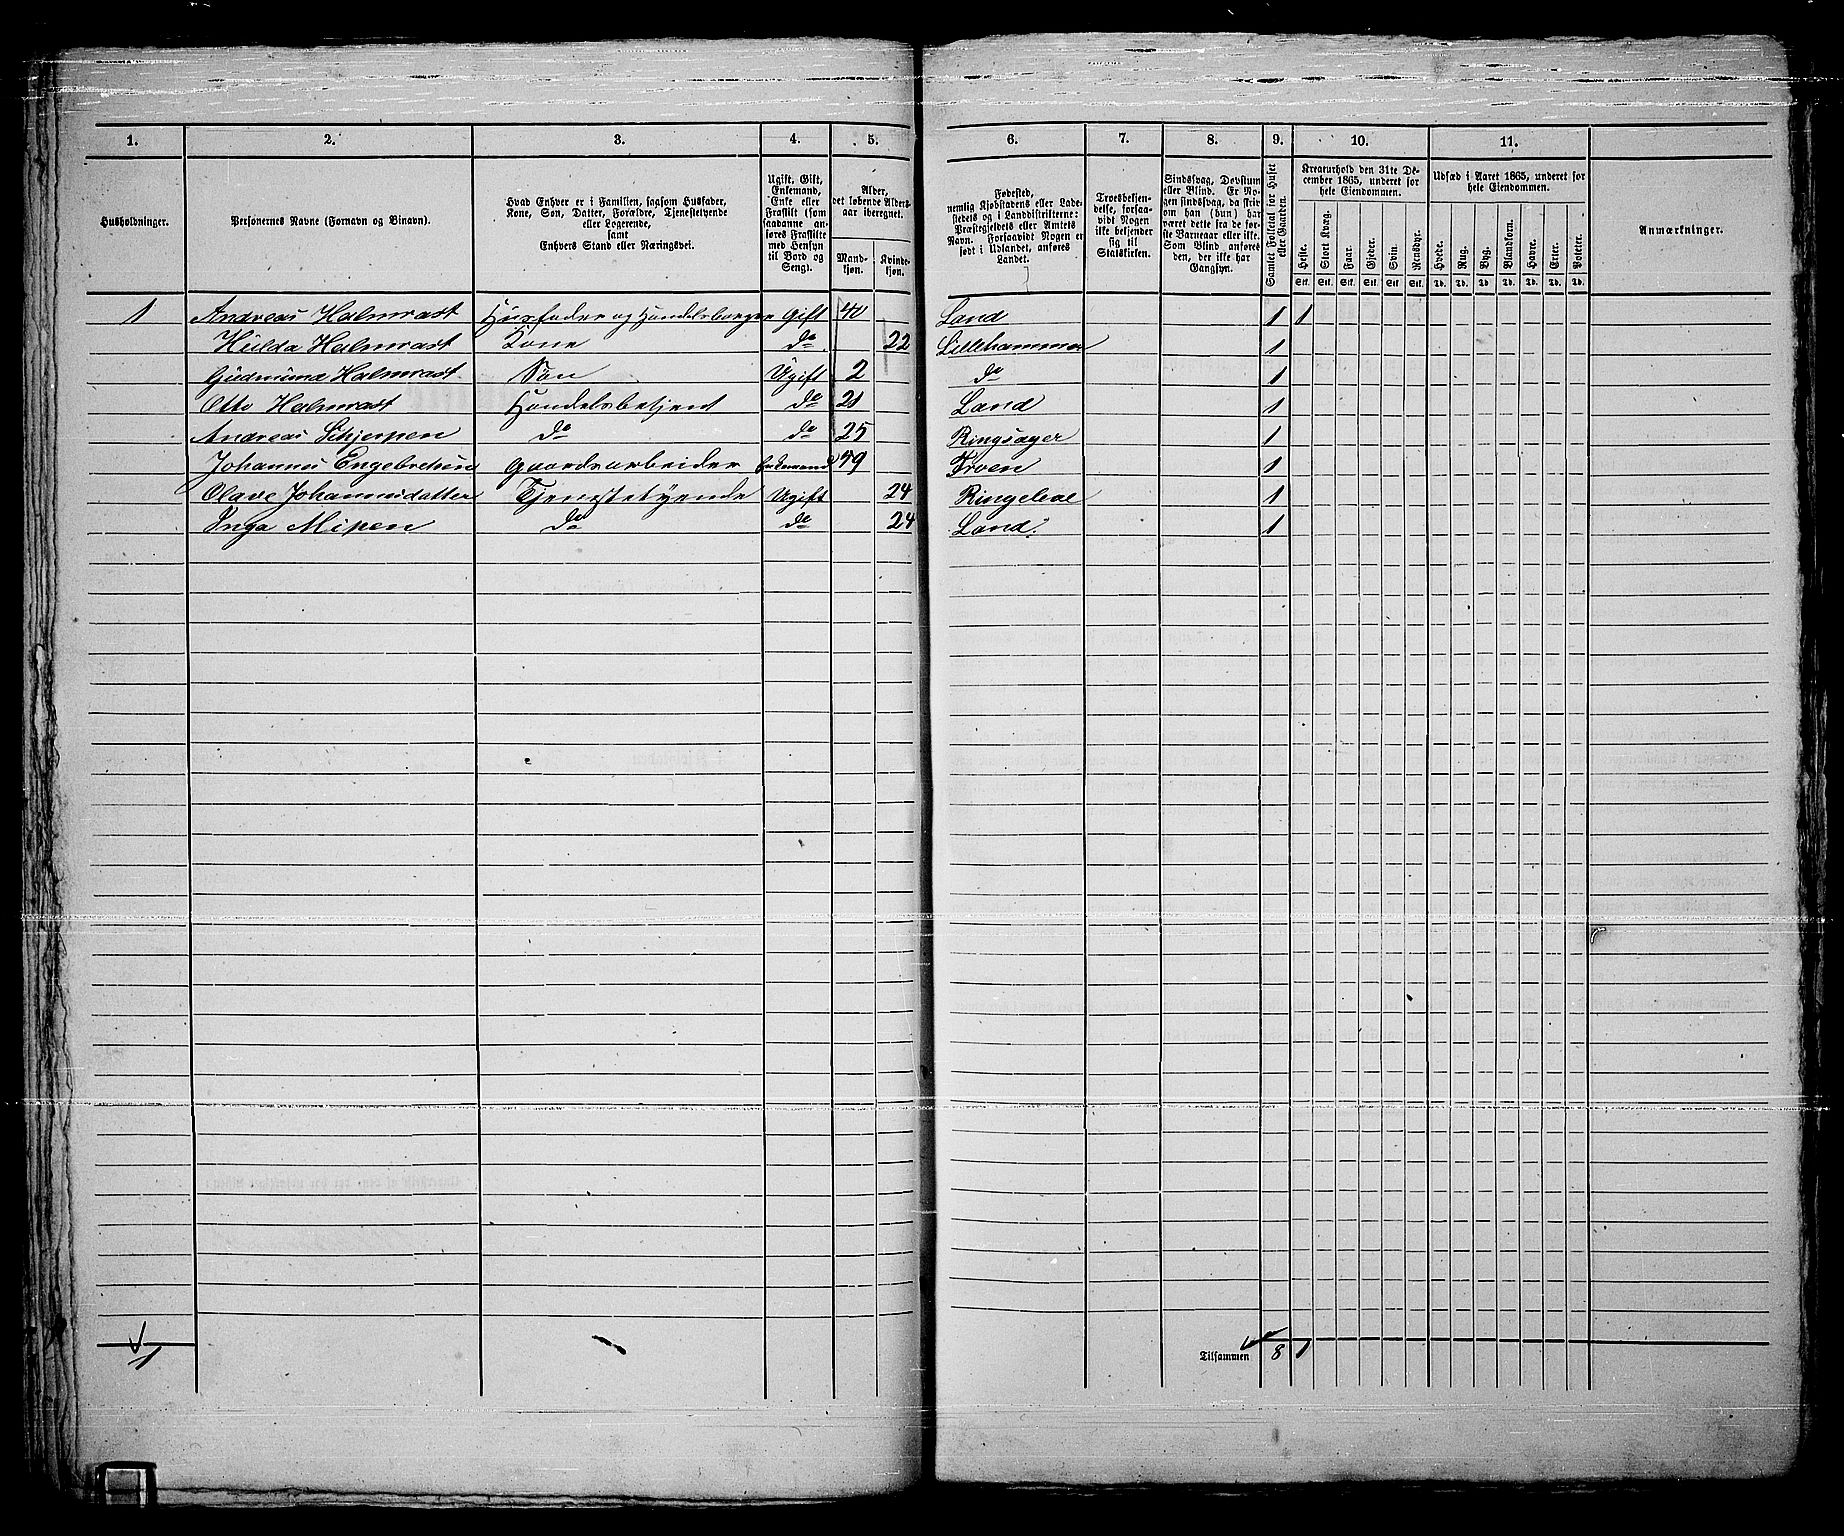 1. 2. 3. 4. 5. 6. 7. 8. 9. 10. 11.
Husholdninger.
Personernes Navne (Fornavn og Binavn).
Hvad Enhver er i Familien, sasom Husfader,
Kone, Søn, Datter, Forældre, Tjenestetyende
eller Logerende,
samt
Enhvers Stand eller Næringsvei.
Ugift, Gift,
Enkemand,
Enke eller
Fraskilt (som
saadanne an-
føres Fraskilte
med Hensyn
til Bord og
Seng).
Alder,
det løbende Alders-
aar iberegnet.
Mand-
kjøn.
Kvinde-
kjøn.
Fødested,
nemlig Kjøbstadens eller Lade-
stedets og i Landdistrikterne:
Præstegjeldets eller Amtets
Navn. Forsaavidt Nogen er
født i Udlandet, anføres
Landet.
Troesbekjen-
delse, forsaa-
vidt Nogen
ikke bekjender
sig til
Statskirken.
Sindssvag, Døvstum
eller Blind. Er No-
gen sindssvag, da skriv
om han (hun) har
været dette fra de før-
ste Barneaar eller ikke.
Som Blind anføres
den, der ikke har
Gangsyn.
Samlet Folketal for Huset
eller Gaarden.
Kreaturhold den 31te De-
cember 1865, underet for
hele Eiendommen.
Heste. Stort Kvæg. Faar. Gjeder. Svin. Rensdyr.
Stk. Stk. Stk. Stk. Stk. Stk.
Udsæd i Aaret 1865, underet for
hele Eiendommen.
Hvede. Rug. Byg. Blandkorn. Havre. Erter. Poteter.
Td. Td. Td. Td. Td. Td. Td.
Anmærkninger.
1 Andreas Halmrast Husfader og Handelsborger Gift 40 Land 1 1
Hulda Halmrast Kone do 22 Lillehammer 1
Gudmund Halmrast Søn Ugift 2 do 1
Otto Halmrast Handelsbetjent do 21 Land 1
Andreas Schjerpen do do 25 Ringsager 1
Johannes Engebretsen Gaardsarbeider Enkemand 49 Froen 1
Olave Johannesdatter Tjenestetyende Ugift 24 Ringeboe 1
Inga Mipen do do 24 Land. 1
1
Tilsammen 8 1